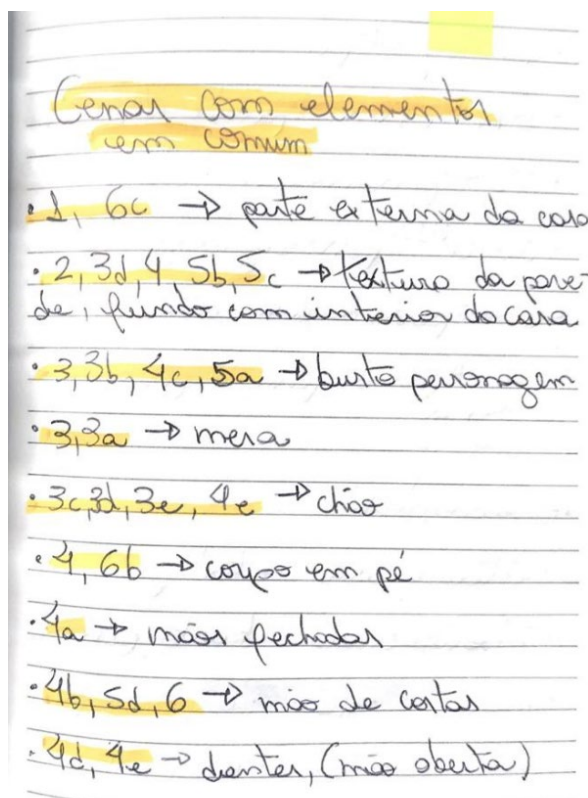 Cenas com elementos
em comum
• 1, 6c → parte externa da casa
• 2, 3d, 4, 5b, 5c → textura da pare-
de, fundo com interior da casa
• 3, 3b, 4c, 5a → busto personagem
• 3, 3a → mesa
• 3c, 3d, 3e, 4e → chão
• 4, 6b → corpo em pé
• 4a → mãos fechadas
• 4b, 5d, 6 → mão de costas
• 4d, 4e → dentes, (mão aberta)